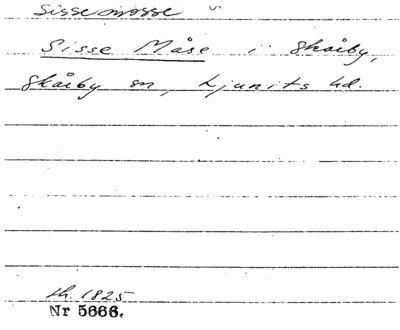 Sissemosse
Sisse Måse i Skårby,
Skårby sn, Ljunits hd.
th. 1825
Nr 5666.